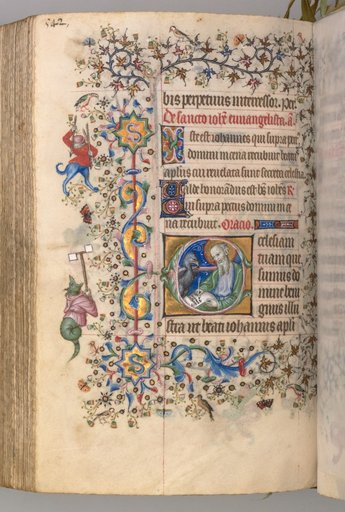 542,
bis perpetuus intercessor. Per
De sancto iohe euuangelista. a
Iste est iohannes qui supra pec
domini in cena recubuit beatus
aplus cui reuelata sunt secreta celestia
Valde honoradus est bs iohes R
Qui supra pectus domini in ce
na recubuit. Oracio.
Ecclesiam
tuam que
sumus do
mine beni
gnus illu
stra ut beati iohannis apli